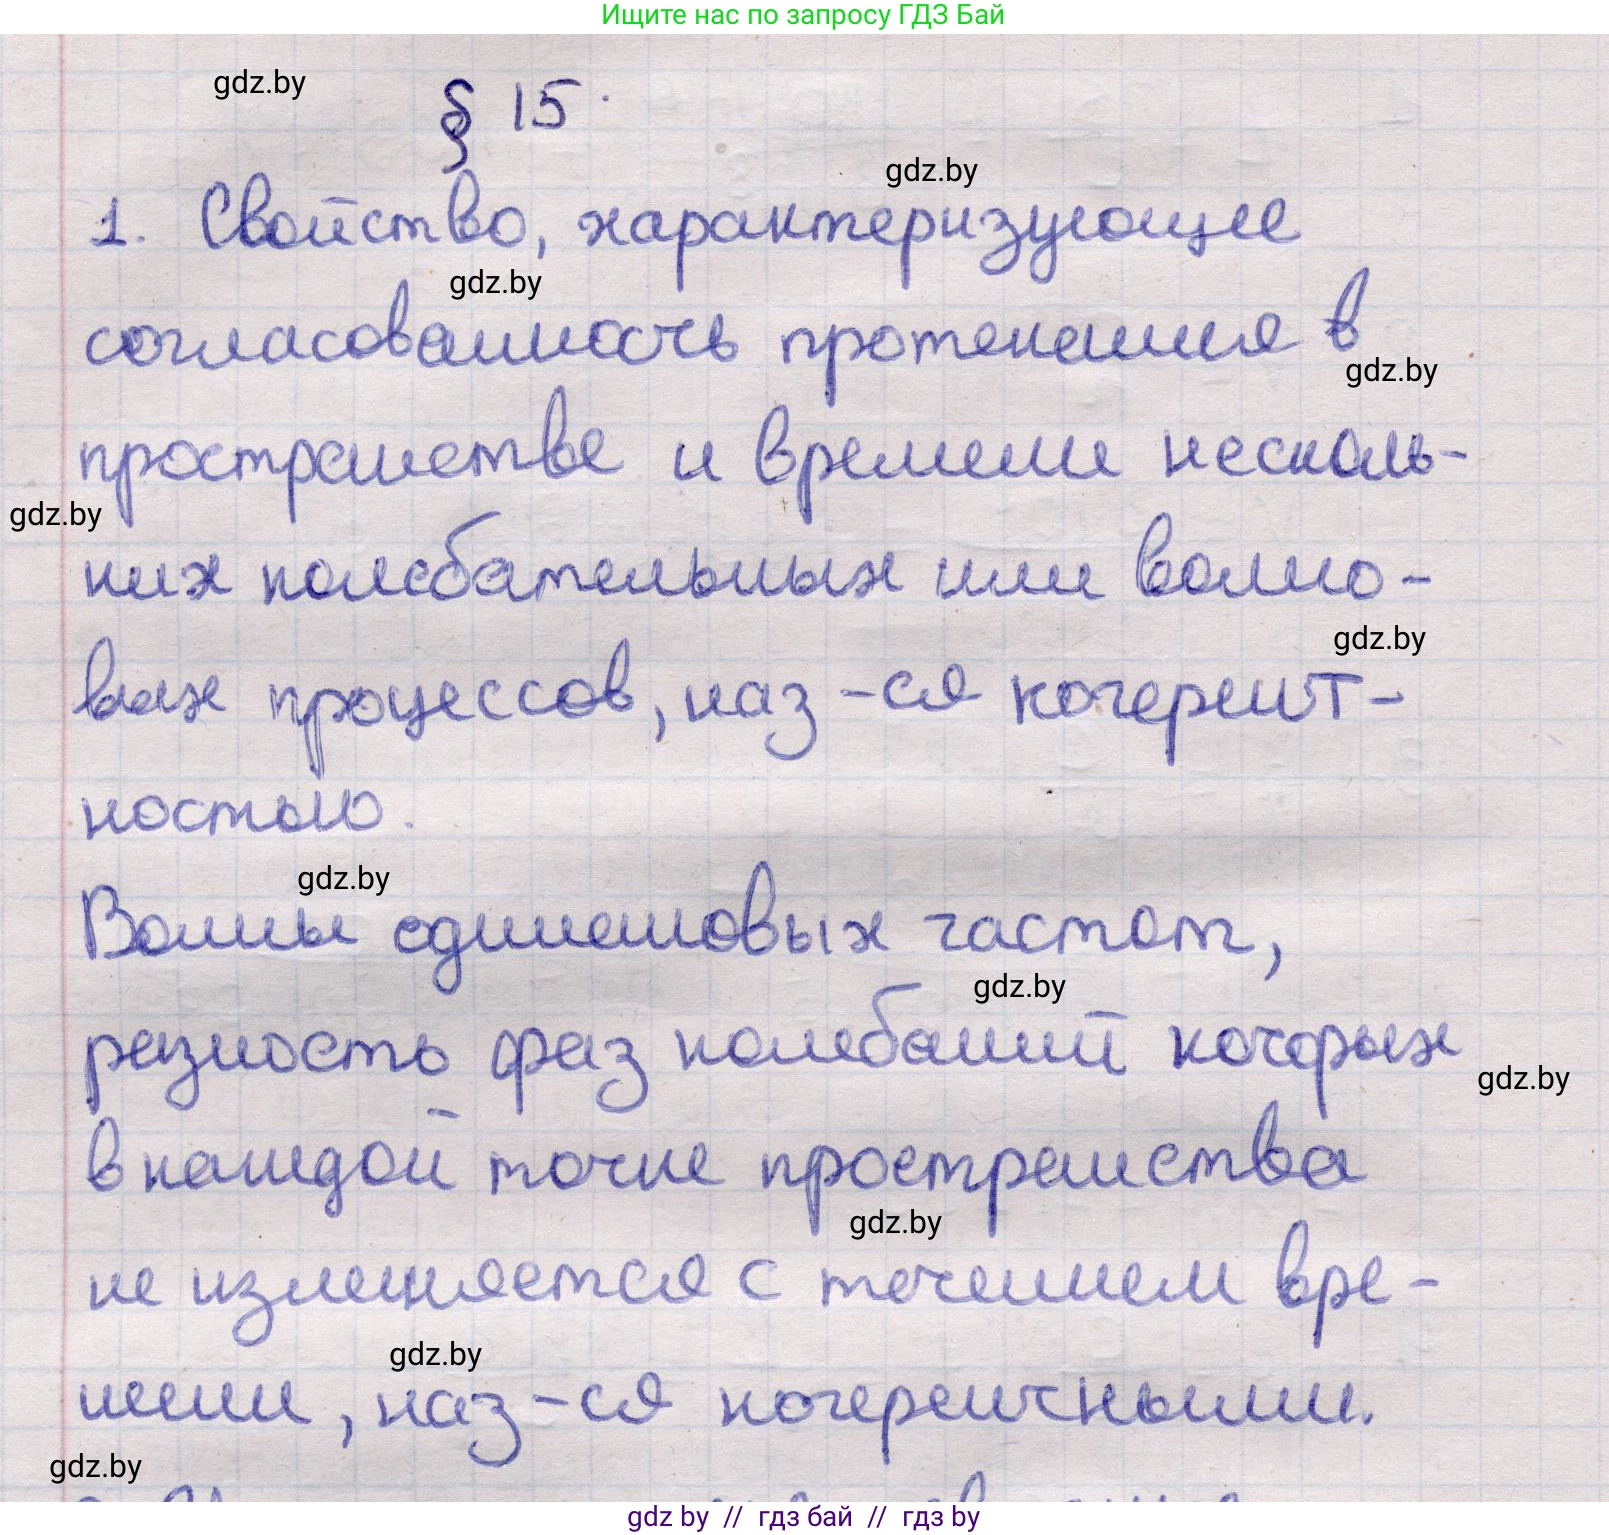 Ищите нас по запросу ГДЗ Бай
gdz.by
§ 15.
gdz.by
1. Свойство, характеризующее
gdz.by
согласованность протекания в
gdz.by
пространстве и времени несколь-
gdz.by
ких колебательных или волно-
gdz.by
вых процессов, наз-ся когерент-
ностью.
gdz.by
Волны одинаковых частот,
gdz.by
разность фаз колебаний которых
gdz.by
в каждой точке пространства
gdz.by
не изменяется с течением вре-
gdz.by
мени, наз-ся когерентными.
gdz.by
gdz by // гдз бай // гдз by